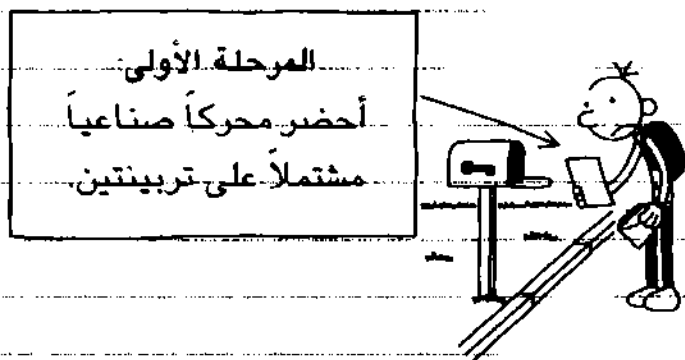 المرحلة الأولى:
أحضر محركاً صناعياً
مشتملاً على تربينتين.